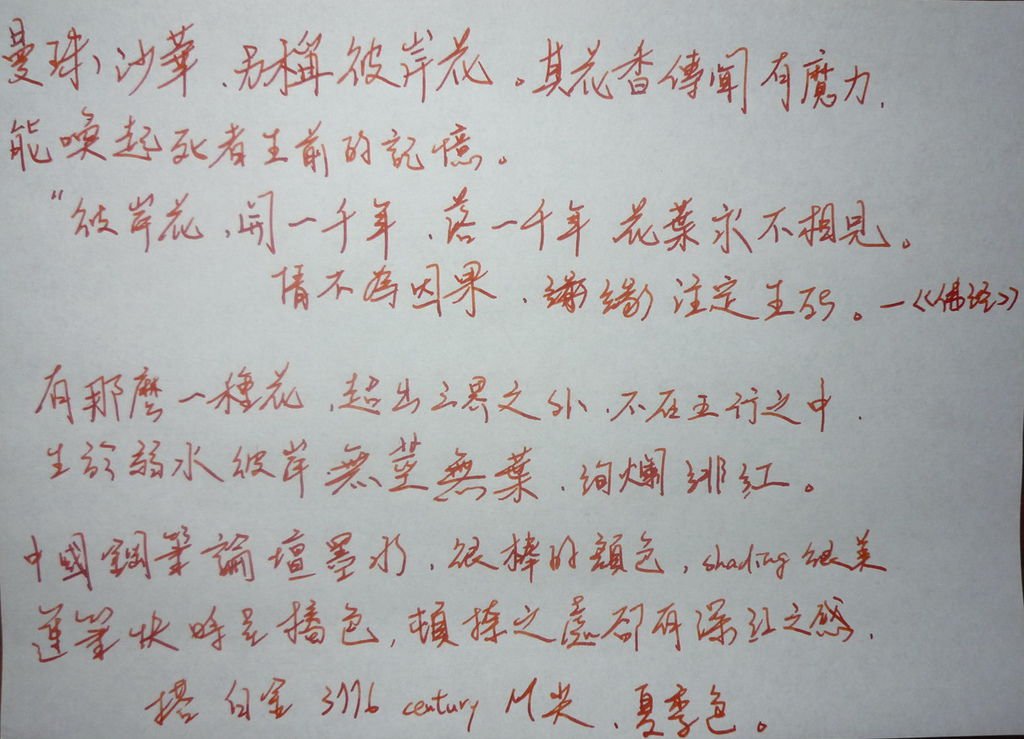 曼珠沙華，另稱彼岸花。其花香傳聞有魔力，
能喚起死者生前的記憶。
“彼岸花，開一千年，落一千年 花葉永不相見。
情不為因果，緣注定生死。—《佛經》
有那麼一種花，超出三界之外，不在五行之中，
生於弱水彼岸 無莖無葉，絢爛緋紅。
中國鋼筆論壇墨水，很棒的顏色，shading 很美
運筆快時呈橘色，頓捺之處卻有深紅之感，
搭 白金 3776 century M尖，夏季色。